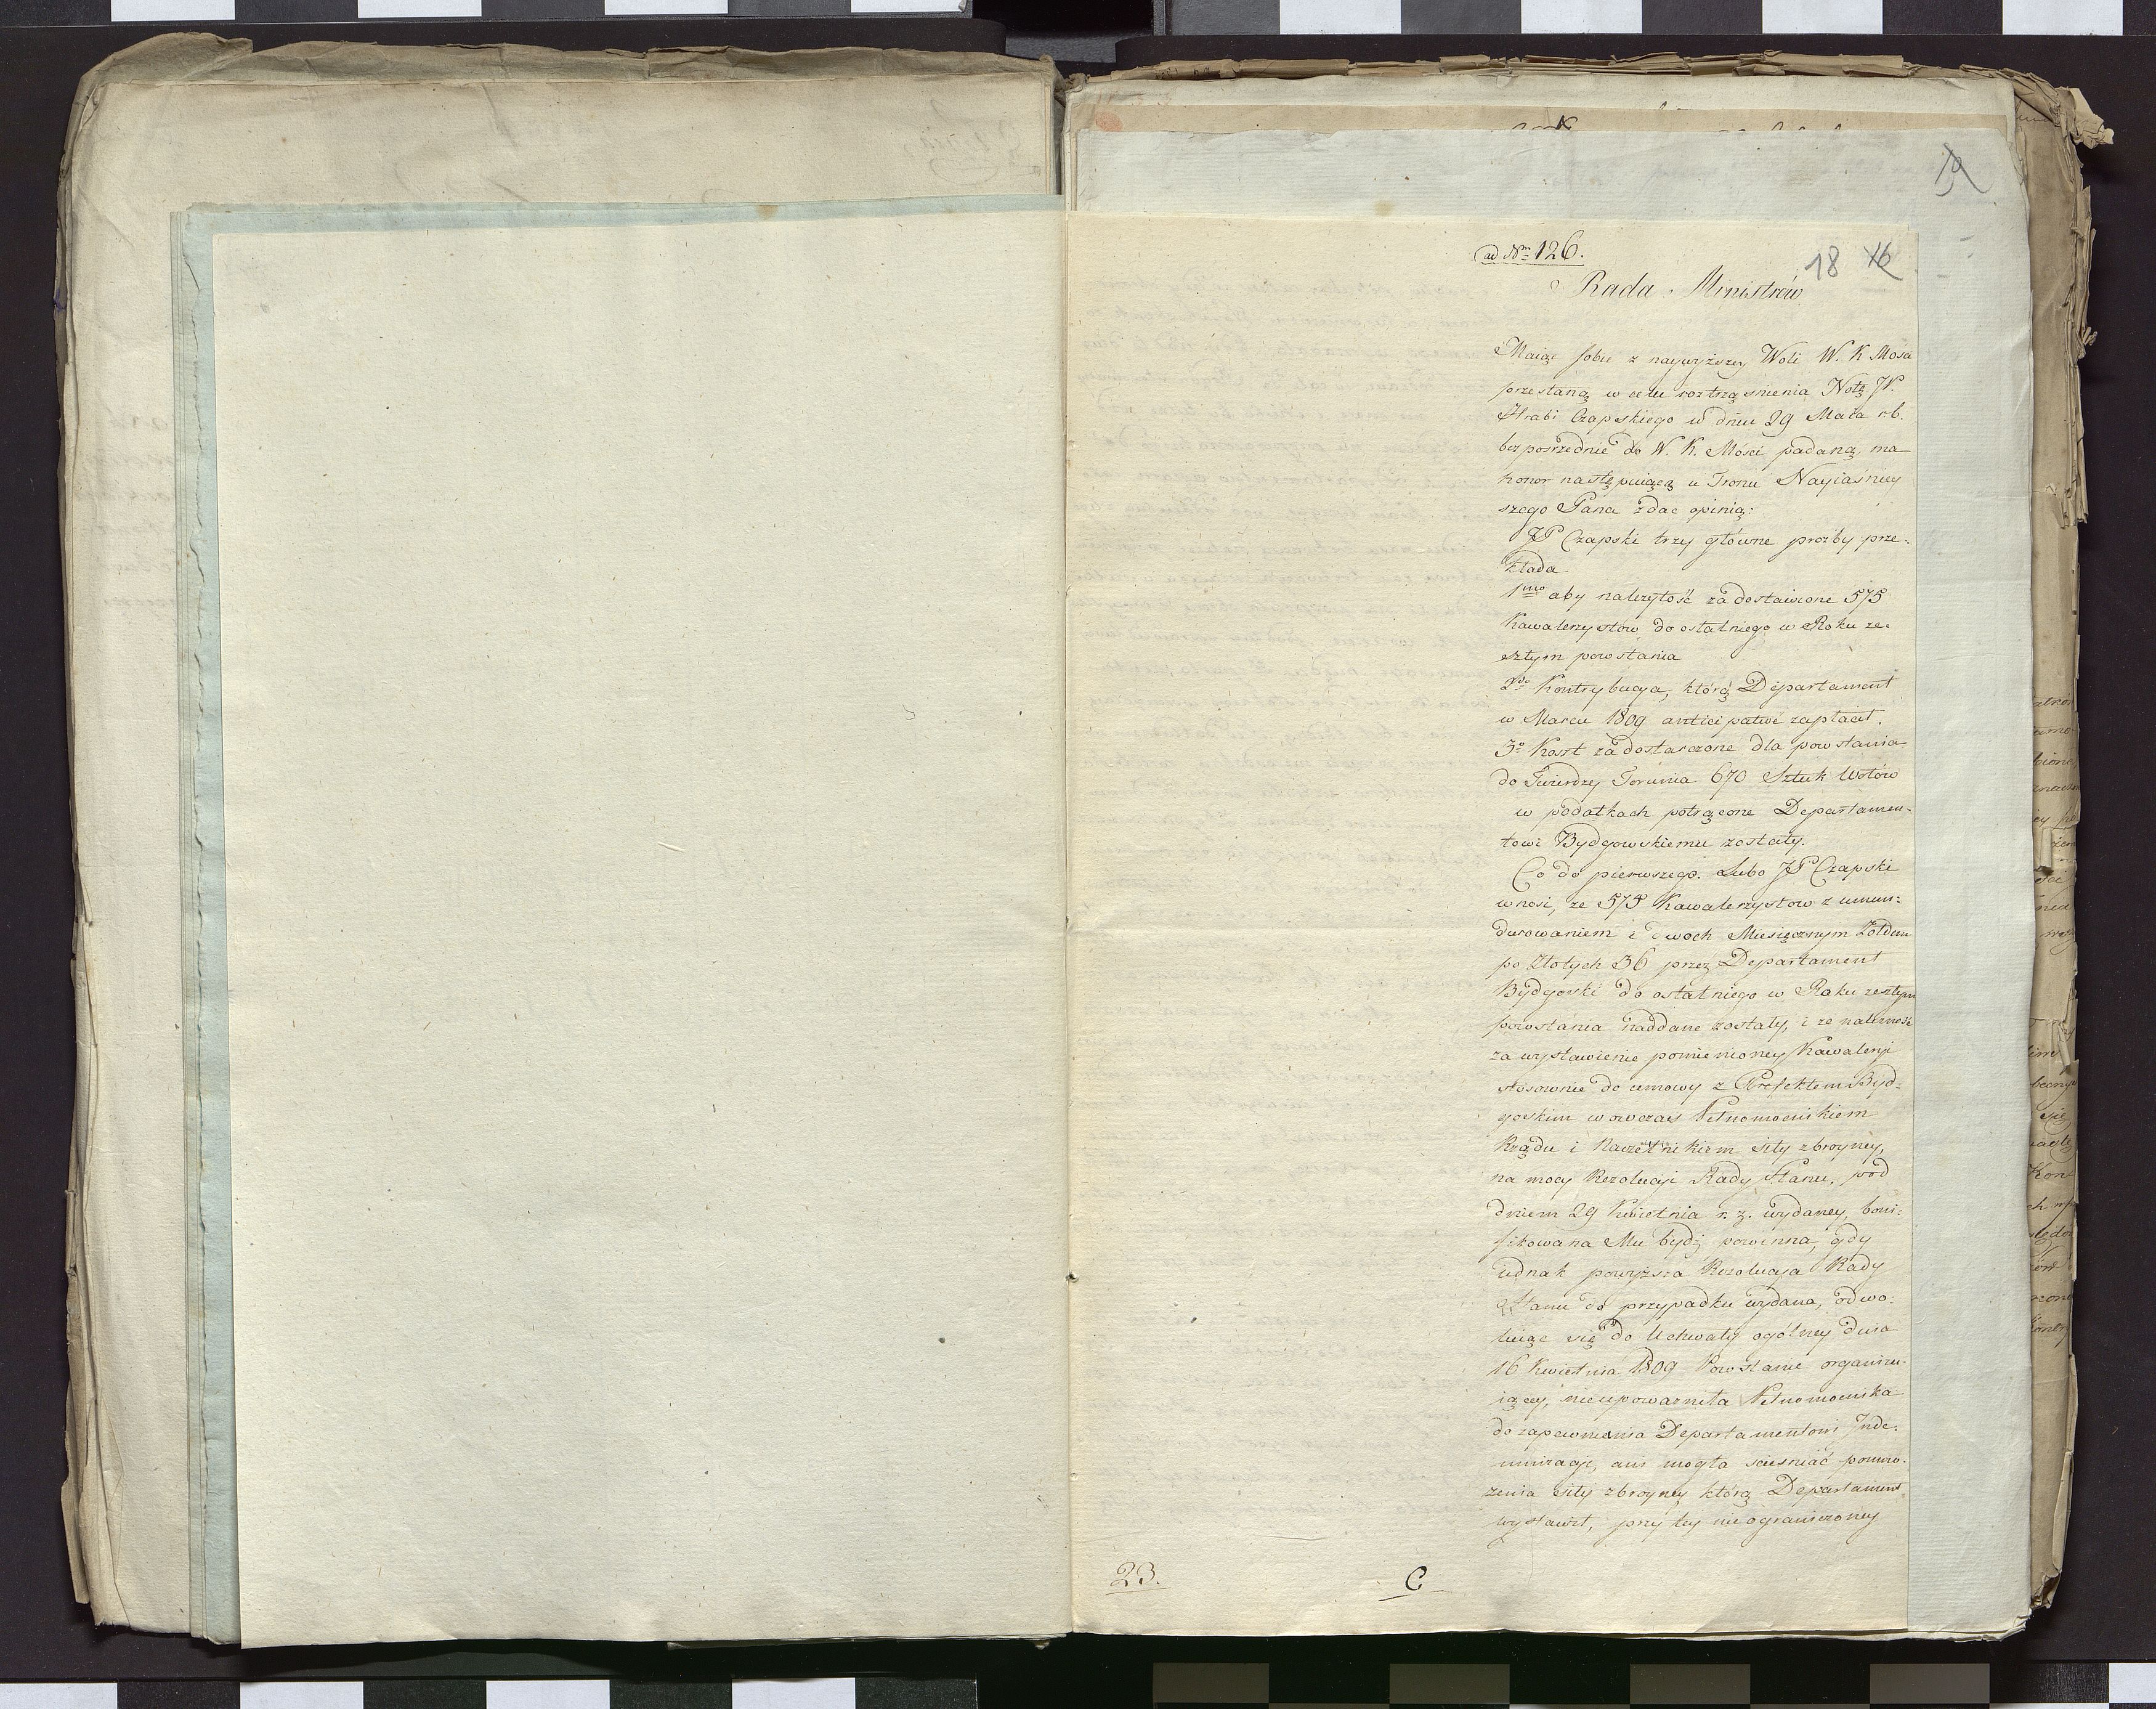 ad Nrm 126.
18 16
19
Rada Ministrów
Maiąc sobie z naywyższey Woli W. K Mości
przesłaną w celu roztrząsnienia Notę JP.
Hrabi Czapskiego w dniu 29 Maia r.b.
bezposrzednie do W. K. Mości podaną, ma
honor następuiącą u Tronu Nayiaśniey
szego Pana zdać opinią:
JP Czapski trzy główne prozby prze-
kłada
1mo aby należytość za dostawione 575
Kawalerzystów do ostatniego w Roku ze-
szłym powstania
2do Kontrybucya, którą Departament
w Marcu 1809 anticipative zapłacił.
3o Koszt za dostarczone dla powstania
do Twierdzy Torunia 670 Sztuk Wołów
w podatkach potrącone Departamen-
towi Bydgowskiemu zostały.
Co do pierwszego. Lubo JP Czapski
wnosi, ze 575 Kawalerzystow z umun-
durowaniem i dwoch Miesięcznym Zołdem
po Złotych 36 przez Departament
Bydgoski do ostatniego w Roku zeszłym
powstania naddane zostały, i ze należność
za wystawienie pomienioney Kawaleryi
stosownie do umowy z Prefektem Byd-
goskim wowczas Pełnomocnikiem
Rządu i Naczelnikiem siły zbroyney,
na mocy Rezolucyi Rady Stanu, pod
dniem 29 Kwietnia r. z. wydaney, boni-
fikowana Mu bydź powinna, gdy
iednak powyższa Rezolucya Rady
Stanu do przypadku wydana, odwo-
łuiąc się do Uchwały ogólney dnia
16 Kwietnia 1809 Powstanie organizu-
iącey, nieupoważniła Pełnomocnika
do zapewnienia Departamentowi Inde-
mnizacyi, ani mogła scieśniać pomno-
żenia siły zbroyney którą Departament
wystawił, przy tey nieograniczoney
23. C